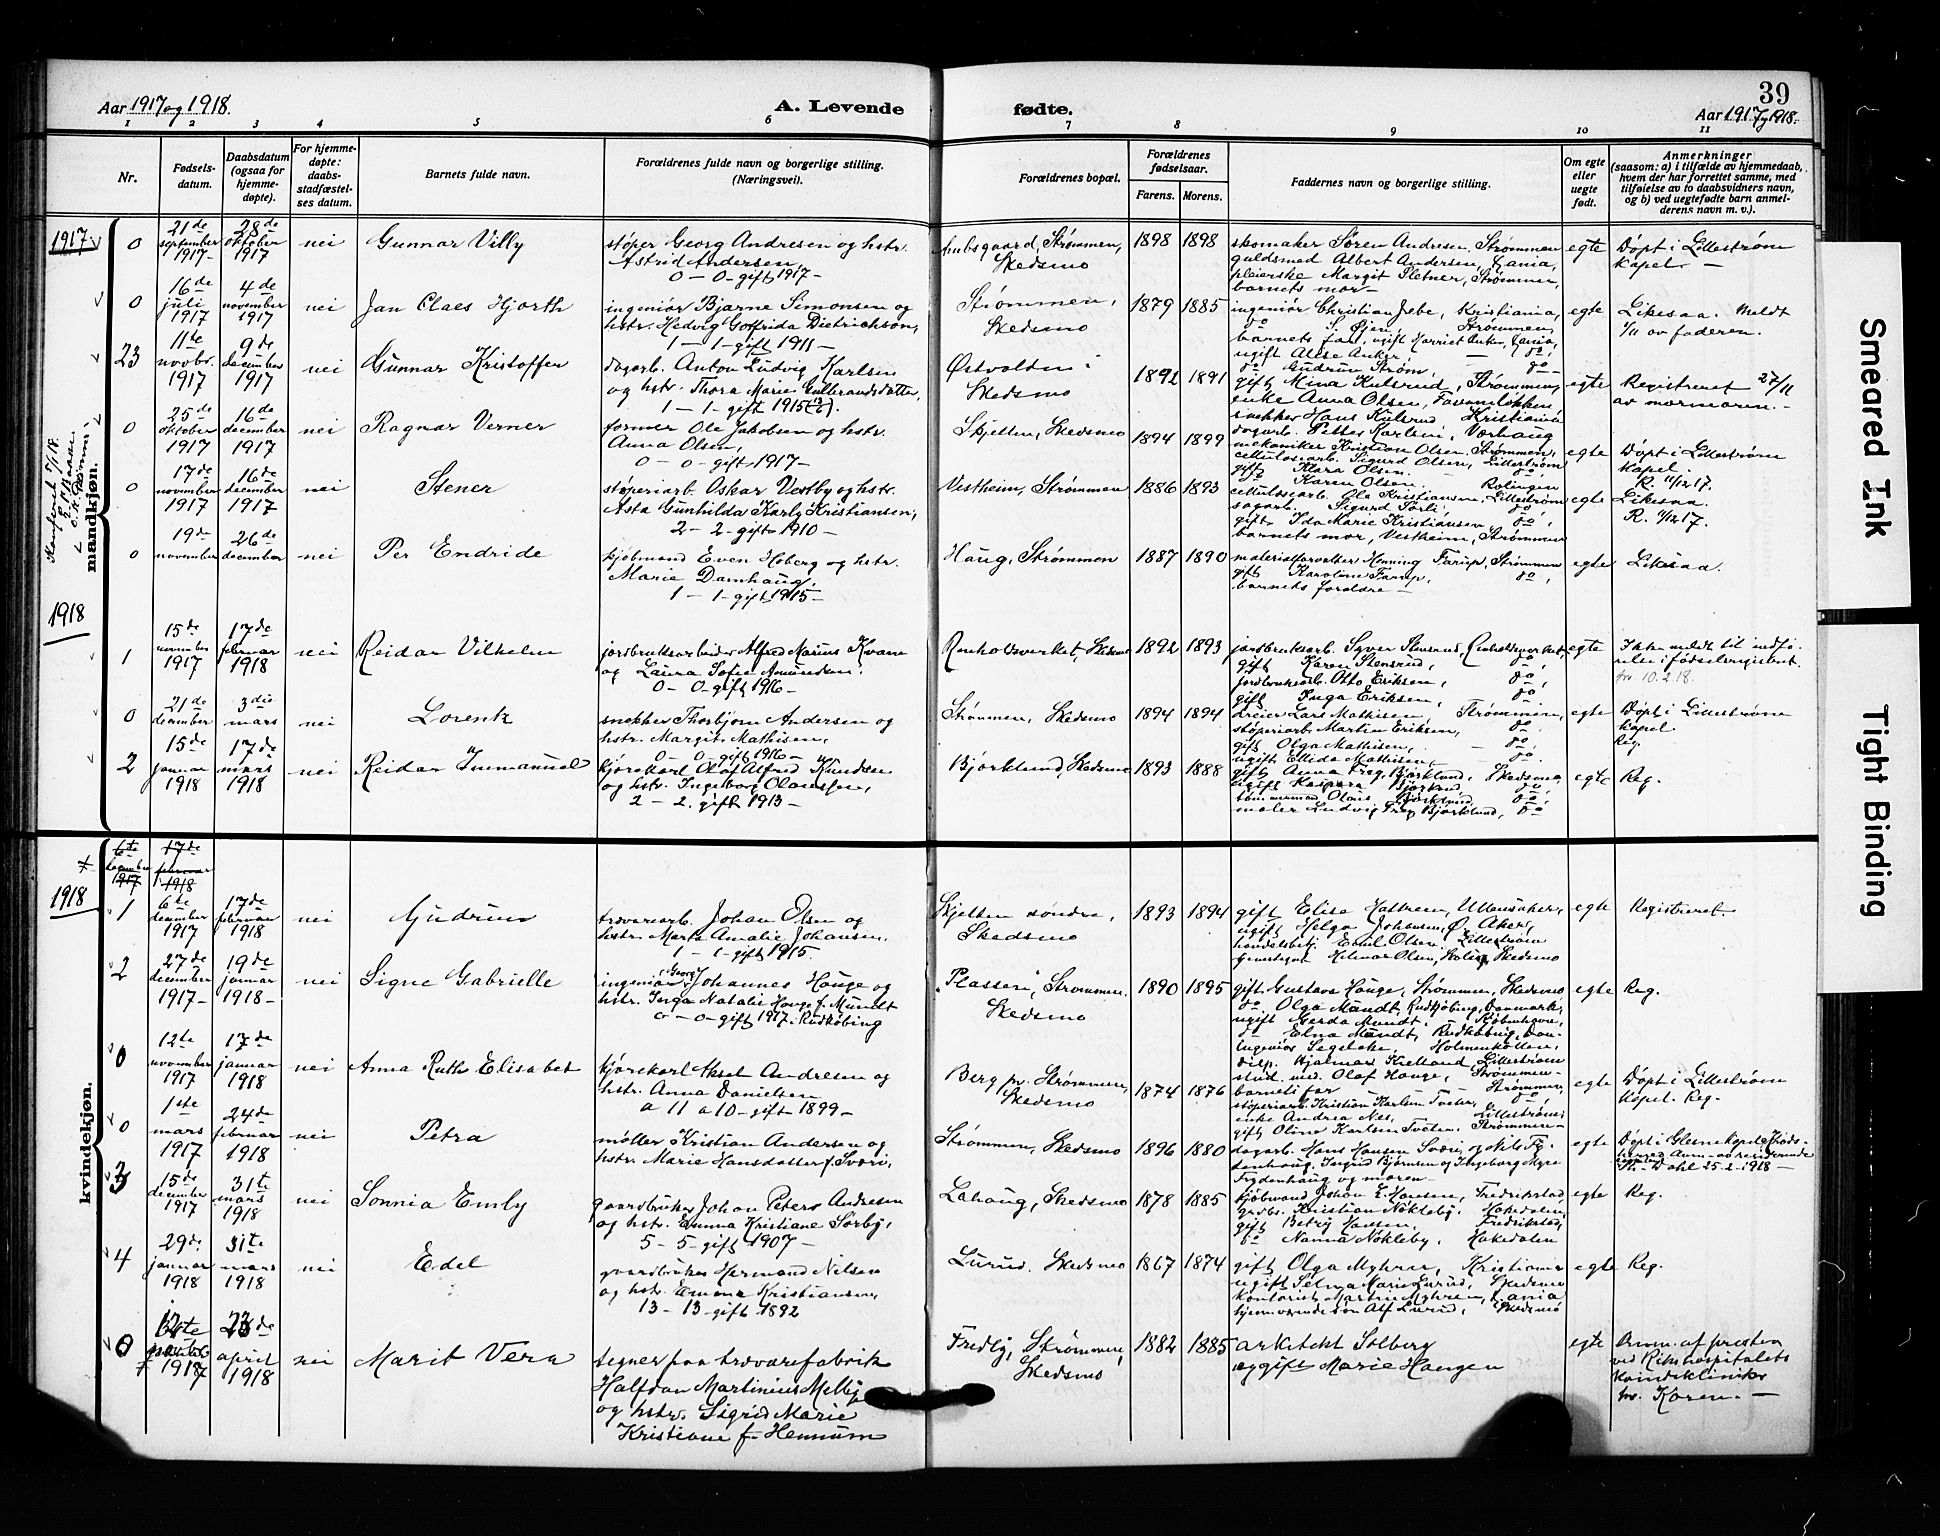 39
Aar 1917 og 1918.
A. Levende
fødte.
Aar 1917 og 1918.
1 2 3 4 5 6 7 8 9 10 11
Nr.
Fødsels-
datum.
Daabsdatum
(ogsaa for
hjemme-
døpte).
For hjemme-
døpte:
daabs-
stadfæstel-
ses datum.
Barnets fulde navn.
Forældrenes fulde navn og borgerlige stilling.
(Næringsvei).
Forældrenes bopæl.
Forældrenes
fødselsaar.
Farens. Morens.
Faddernes navn og borgerlige stilling.
Om egte
eller
uegte
født.
Anmerkninger
(saasom: a) i tilfælde av hjemmedaab,
hvem der har forrettet samme, med
tilføielse av to daabsvidners navn,
og b) ved uegtefødte barn anmel-
derens navn m. v.).
1917
mandkjøn.
0
21de
september
1917
28de
oktober
1917
nei
Gunnar Villy
støper Georg Andresen og hstr.
Astrid Andersen,
0 – 0 – gift 1917 –
Ambsgaard, Strømmen,
Skedsmo
1898 1898
skomaker Søren Andersen, Strømmen
guldsmed Albert Andersen,
pleierske Margit Sletner, Strømmen,
barnets mor –
egte
Døpt i Lillestrøm
kapel. –
0
16de
juli
1917
4de
november
1917
nei
Jan Claes Hjorth
ingeniør Bjarne Simonsen og
hstr. Hedvig Gotfrida Dietrichson,
1 – 1 – gift 1911 –
Strømmen,
Skedsmo
1879 1885
ingeniør Christian Jebe, Kristiania,
do S. Øjen, Strømmen,
barnets far, ugift Harriet Anker,
ugift Alise Anker, – do,
egte
Likesaa. Meldt
1/11 av faderen.
23
11te
novbr.
1917
9de
december
1917
nei
Gunnar Kristoffer
dagarb. Anton Ludvig Karlsen
og hstr. Thora Marie Gulbrandsdatter,
1 – 1 – gift 1915
Østvolden i
Skedsmo
1892 1891
do Gudrun Strøm, – do –
gift Mina Kulsrud, Strømmen,
enke Anna Olsen,
snekker Hans Kulsrud Kristiania
dagarb. Petter Karlsen, Værhaug
egte
Registreret 27/11
av mormoren. –
0
25de
oktober
1917
16de
december
1917
nei
Ragnar Verner
former Ole Jakobsen og hstr.
Anna Olsen,
0 – 0 – gift 1917 –
Skjetten, Skedsmo
1894 1899
mekaniker Kristian Olsen, Strømmen,
cellulosearb. Sigurd Olsen, Lillestrøm
gift Klara Olsen. do
do Karen Olsen. Rælingen
egte
Døpt i Lillestrøm
kapel.
R. 11/12 17.
0
17de
november
1917
16de
december
1917
nei
Stener
støperiarb. Oskar Vestby og hstr.
Asta Gunhilda Karly Kristiansen,
2 – 2 – gift 1910 –
Vestheim, Strømmen
1886 1893
cellulosearb. Ole Kristiansen, Lillestrøm
sagarb. Sigurd Sørli, do,
gift Ida Marie Kristiansen, do,
barnets mor, Vestheim, Strømmen
egte
Likesaa.
R. 11/12 17.
0
19de
november
26de
december
nei
Per Endride
kjøbmand Even Hoberg og hstr.
Marie Damhaug,
1 – 1 – gift 1915 –
Haug, Strømmen
1887 1890
materialforvalter Henning Farup, Strømmen
gift Karoline Farup, do,
barnets forældre –
egte
Likesaa.
1918
1
15de
november
1917
17de
februar
1918
nei
Reidar Vilhelm
jordbruksarbeider Alfred Marius Kvam
og Laura Sofie Amundsen.
0 – 0 – gift 1916 –
Renholdsverket, Skedsmo
1892 1893
jordbruksarb. Syver Stensrud, Renholdsverket,
gift Karen Stensrud, do,
jordbruksarb. Otto Eriksen, do,
gift Inga Eriksen, do
egte
Ikke meldt til indfø-
relse i fødselsregistret.
10.2.18.
0
21de
december
3die
mars
nei
Lorentz
snekker Thorbjørn Andersen og
hstr. Margit Mathisen,
0 – 0 – gift 1916 –
Strømmen, Skedsmo
1894 1894
dreier Lars Mathisen, Strømmen,
støperiarb. Martin Eriksen, do,
gift Olga Mathisen, – do
ugift Ellida Mathisen, – do.
egte
Døpt i Lillestrøm
kapel.
Reg.
2
15de
januar
1918
17de
mars
1918
nei
Reidar Immanuel
kjørekarl Olaf Alfred Knudsen
og hstr. Ingeborg Olaussen,
2 – 2. gift 1913 –
Bjørklund, Skedsmo
1893 1888
gift Anna Freg. Bjørklund, Skedsmo,
ugift Kaspara Bjørklund, do,
tømmermand Olaus Bjørklund, do,
maler Ludvig Freg Bjørklund, do
egte
Reg.
1918
kvindekjøn.
6te
december
1917
17de
februar
1918
1
6te
december
1917
17de
februar
1918
nei
Gudrun
trævarearb. Johan Olsen og
hstr. Marta Amalie Johansen.
1 – 1 – gift 1915.
Skjetten søndre,
Skedsmo
1893 1894
gift Elise Hathrem, Ullensaker,
ugift Helga Johansen, Ø. Aker,
handelsbetj. Emil Olsen, Lillestrøm
Hilmar Olsen, Skedsmo
egte
Registreret.
2
27de
december
1917 –
19de
januar
1918 –
nei
Signe Gabrielle
ingeniør Georg Johannes Hauge og
hstr. Inga Natalie Hauge f. Mundt
0 – 0 – gift 1917 i Rudkøbing
"Plassen", Strømmen.
Skedsmo
1890 1895
gift Gustava Hauge, Strømmen, Skedsmo
do. Olga Mundt, Rudkjøbing, Danmark,
ugift Gerda Mundt, København,
do Elna Mundt, Rudkøbing, Dan-
ingeniør Segelcke, Holmenkollen,
disp. Hjalmar Kielland Lillestrøm
stud. med. Olaf Hauge, Strømmen –
egte
Reg.
0
12te
november
1917
17de
januar
1918
nei
Anna Ruth Elisabet
kjørekarl Aksel Andresen og
hstr. Anna Danielsen
a 11 a 10 – gift 1899 –
Berg pr. Strømmen,
Skedsmo
1874 1876
barnets far Strømmen,
støperiarb. Kristian Karlsen Tveter, do
enke Andrea Nes, Lillestrøm,
gift Olina Karlsen Tveten, Strømmen –
egte
Døpt i Lillestrøm
Kapel. Reg.
0
1ste
mars
1917
24de
februar
1918
nei
Petra
møller Kristian Andersen og
hstr. Marie Hansdatter f. Sværi,
Strømmen, Skedsmo
1896 1880
dagarb. Hans Hansen Sværi, og Nils Fry-
denhaug, Ingrid Bjørnsen og Ingeborg
Frydenhaug og moren –
egte
Døpt i
Dahl 25-2-1918 –
3
15de
december
1917
31te
mars
1918
nei
Sonnia Emly
gaardbruker Johan Peters Andresen
og hstr. Emma Kristiane Sørby,
5 – 5 – gift 1907 –
Lahaug, Skedsmo
1878 1885
kjøbmand Johan E. Hansen, Fredrikstad
grdbr. Kristian Nøkleby, Hakedalen,
gift Betzy Hansen, Fredrikstad,
do Nanna Nøkleby, Hakedalen
egte
Reg.
4
29de
januar
1918
31te
mars
1918
nei
Edel
gaardbruker Hermand Nilsen
og hstr. Emma Kristiansen,
13 – 13 – gift 1892
Lurud. Skedsmo
1867 1874
gift Olga Myhrer, Kristiania
ugift Selma Marie Lurud, Skedsmo
kontorist Martin Myhrer,
hjemmeværende søn Alf Lurud, Skedsmo
egte
Reg.
0
1917
23de
april
1918
nei
Marit Vera
tegner paa trævarefabrik
Halfdan Martinius Melby
og hstr. Sigrid Marie
Kristiane f. Hennum
Fredly, Strømmen,
Skedsmo
1882 1885
arkitekt Solberg
og gift Marie Haugen
egte
Anm. af presten
ved Rikshospitalets
Kvindeklinik
hr. Koren. –
Smeared Ink
Tight Binding